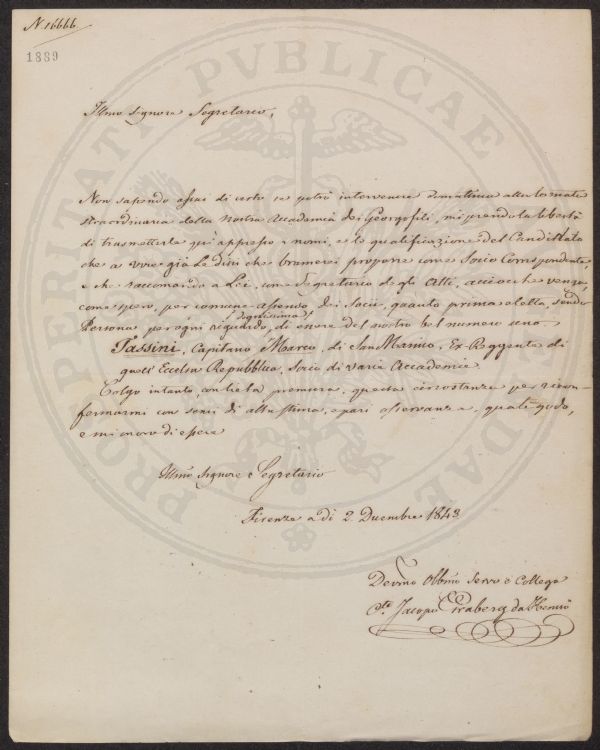 N. 16666.
1889
Illmo Signore Segretario,
Non sapendo assai di certo se potrò intervenire domattina alla tornata
straordinaria della Nostra Accademia dei Georgofili, mi prendo la libertà
di trasmetterle quì appresso i nomi, e le qualificazione del Candidato
che a voce già Le dissi che bramerei proporre come Socio Corrispondente,
e che raccomando a Lei, come Segretario degli Atti, acciocchè venga,
come spero, per comune assenso dei Socii, quanto prima eletto, sendo
Persona per ogni riguardo, dignissima di essere del nostro bel numero uno.
Tassini, Capitano Marco, di San Marino, Ex-Reggente di
quell' Eccelsa Repubblica, Socio di varie Accademie.
Colgo intanto, con lieta premura, questa circostanza per
fermarmi con sensi di alta stima, e pari osservanza, quale godo,
e mi onoro di essere
Illmo Signore e Segretario
Firenze a dì 2. Dicembre 1843
Devmo Obbmo Servo e Collega
Cte Jacopo Graberg da Hemsö
PROSPERITATI PVBLICAE